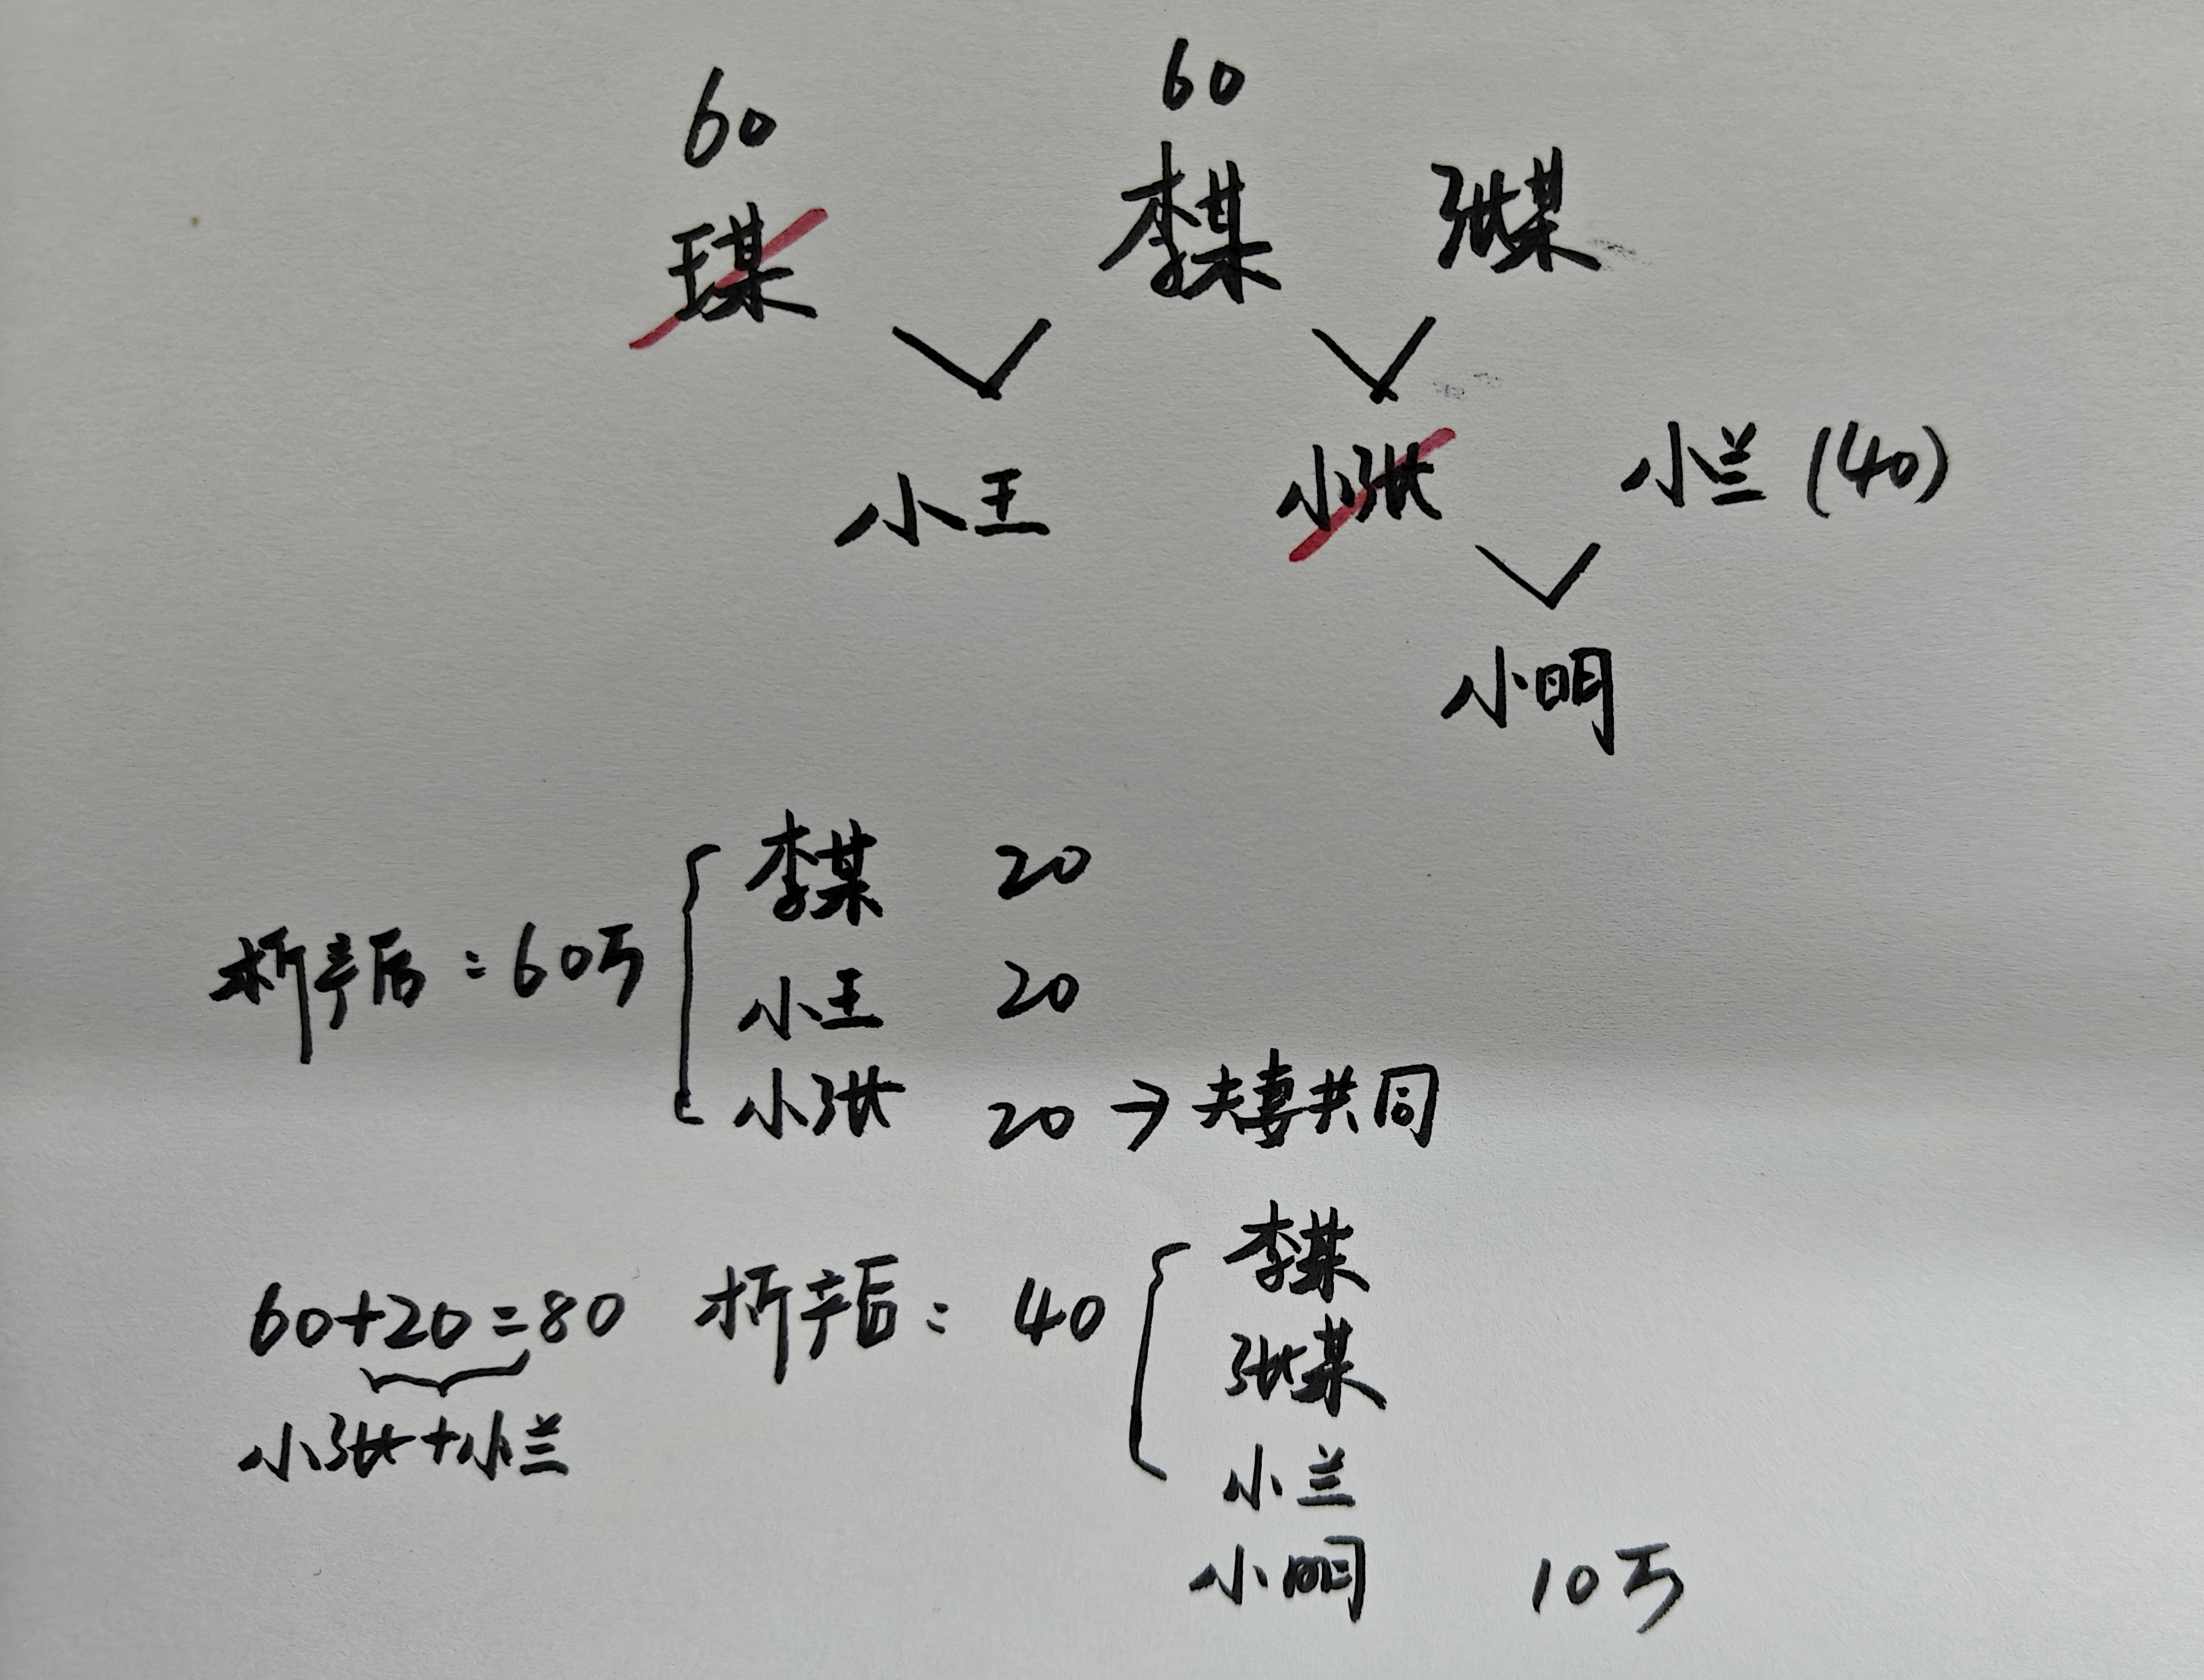 60 60
王某 李某 张某
小王 小张 小兰 (40)
小明
析产后：60万
李某 20
小王 20
小张 20 → 夫妻共同
60+20=80 析产后： 40
小张+小兰
李某
张某
小兰
小明 10万